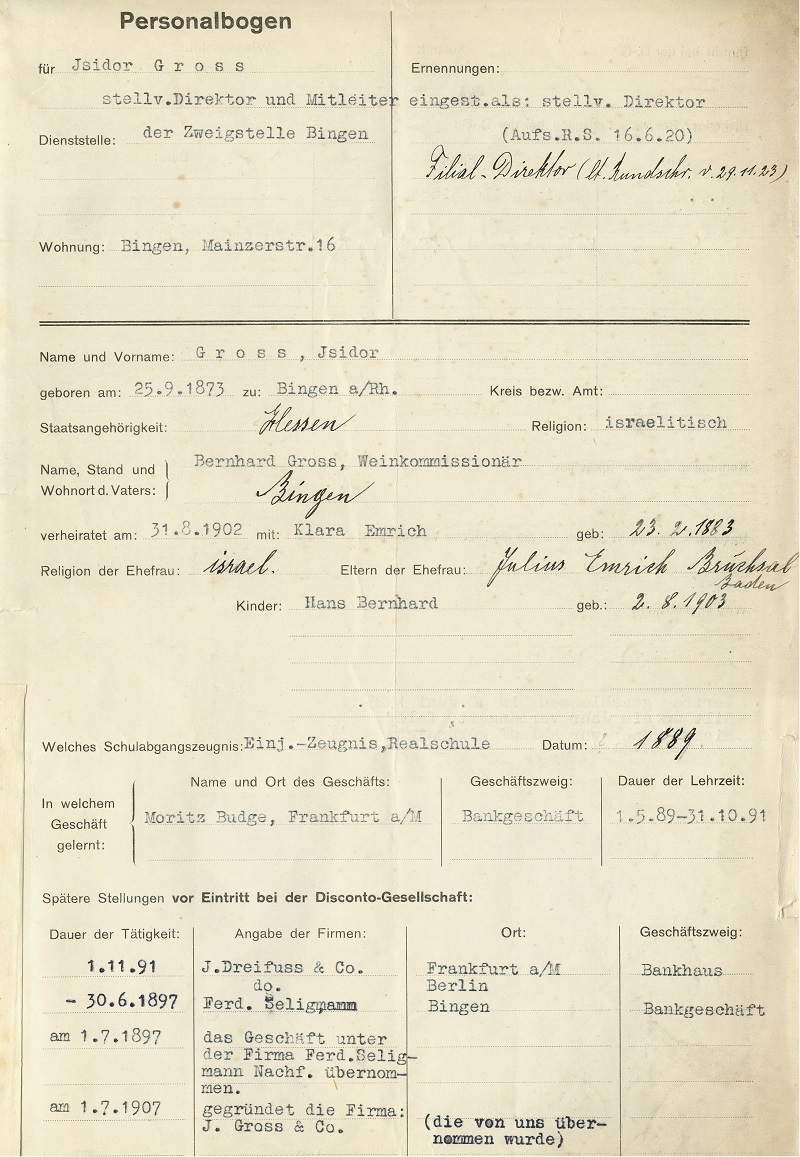 Personalbogen
für Jsidor G r o s s
stellv.Direktor und Mitleiter
Dienststelle: der Zweigstelle Bingen
Wohnung: Bingen, Mainzerstr.16
Ernennungen:
eingest.als: stellv. Direktor
(Aufs.R.S. 16.6.20)
Filial-Direktor (lt. Rundschr. v. 29.11.23)
Name und Vorname: G r o s s , Jsidor
geboren am: 25.9.1873 zu: Bingen a/Rh. Kreis bezw. Amt:
Staatsangehörigkeit: Hessen Religion: israelitisch
Name, Stand und Wohnort d. Vaters: Bernhard Gross, Weinkommissionär
Bingen
verheiratet am: 31.8.1902 mit: Klara Emrich geb: 23.2.1883
Religion der Ehefrau: israel. Eltern der Ehefrau: Julius Emrich Bruchsal
Baden
Kinder: Hans Bernhard geb.: 2.8.1903
Welches Schulabgangszeugnis: Einj.-Zeugnis,Realschule Datum: 1889.
In welchem
Geschäft
gelernt:
Name und Ort des Geschäfts: Geschäftszweig: Dauer der Lehrzeit:
Moritz Budge, Frankfurt a/M Bankgeschäft 1.5.89-31.10.91
Spätere Stellungen vor Eintritt bei der Disconto-Gesellschaft:
Dauer der Tätigkeit: Angabe der Firmen: Ort: Geschäftszweig:
1.11.91 J.Dreifuss & Co. Frankfurt a/M Bankhaus
do. Berlin
- 30.6.1897 Ferd. Seligmann Bingen Bankgeschäft
am 1.7.1897 das Geschäft unter
der Firma Ferd.Selig-
mann Nachf. übernom-
men.
am 1.7.1907 gegründet die Firma:
J. Gross & Co. (die von uns über-
nommen wurde)